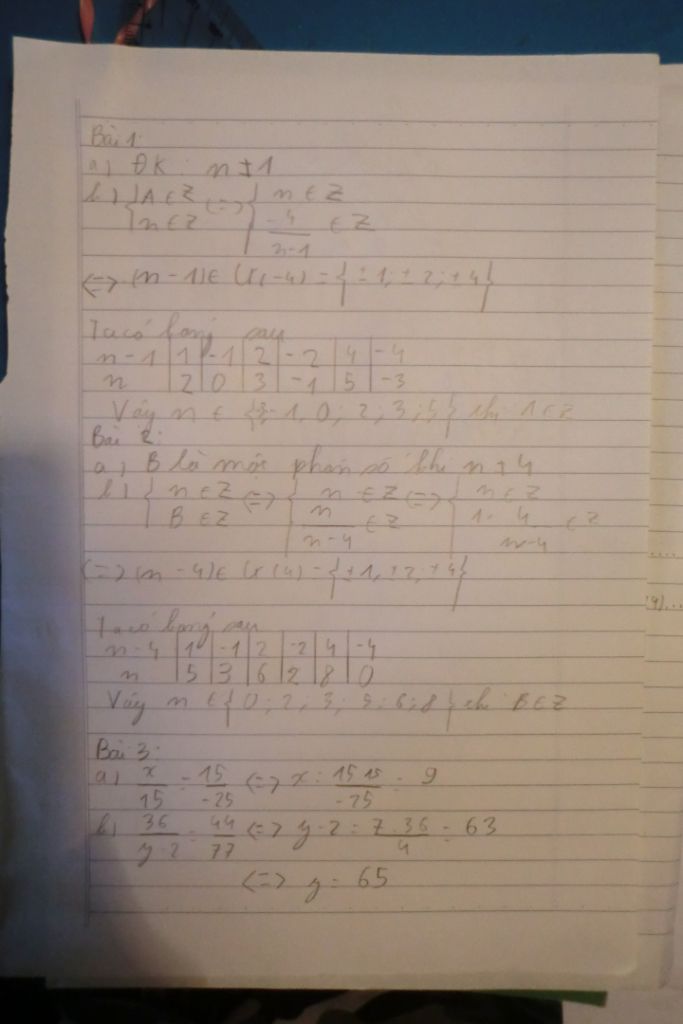 Bài 1:
a) ĐK: n ≠ 1
b) { A ∈ Z <=> { n ∈ Z
n ∈ Z -4/(n-1) ∈ Z
<=> (n-1) ∈ Ư(-4) = {±1; ±2; ±4}
Ta có bảng sau
n-1 | 1 | -1 | 2 | -2 | 4 | -4
n | 2 | 0 | 3 | -1 | 5 | -3
Vậy n ∈ { -1, 0; 2; 3; 5} thì A ∈ Z
Bài 2:
a) B là một phân số khi n ≠ 4
b) { n ∈ Z <=> { n ∈ Z <=> { n ∈ Z
B ∈ Z n/(n-4) ∈ Z 1+ 4/(n-4) ∈ Z
<=> (n-4) ∈ Ư(4) = {±1, ±2; ±4}
Ta có bảng sau
n-4 | 1 | -1 | 2 | -2 | 4 | -4
n | 5 | 3 | 6 | 2 | 8 | 0
Vậy n ∈ { 0; 2; 3; 5; 6; 8 } thì B ∈ Z
Bài 3:
a) x/15 = 15/-25 <=> x = 15.15/-25 = 9
b) 36/(y-2) = 44/77 <=> y-2 = 7.36/4 = 63
<=> y = 65